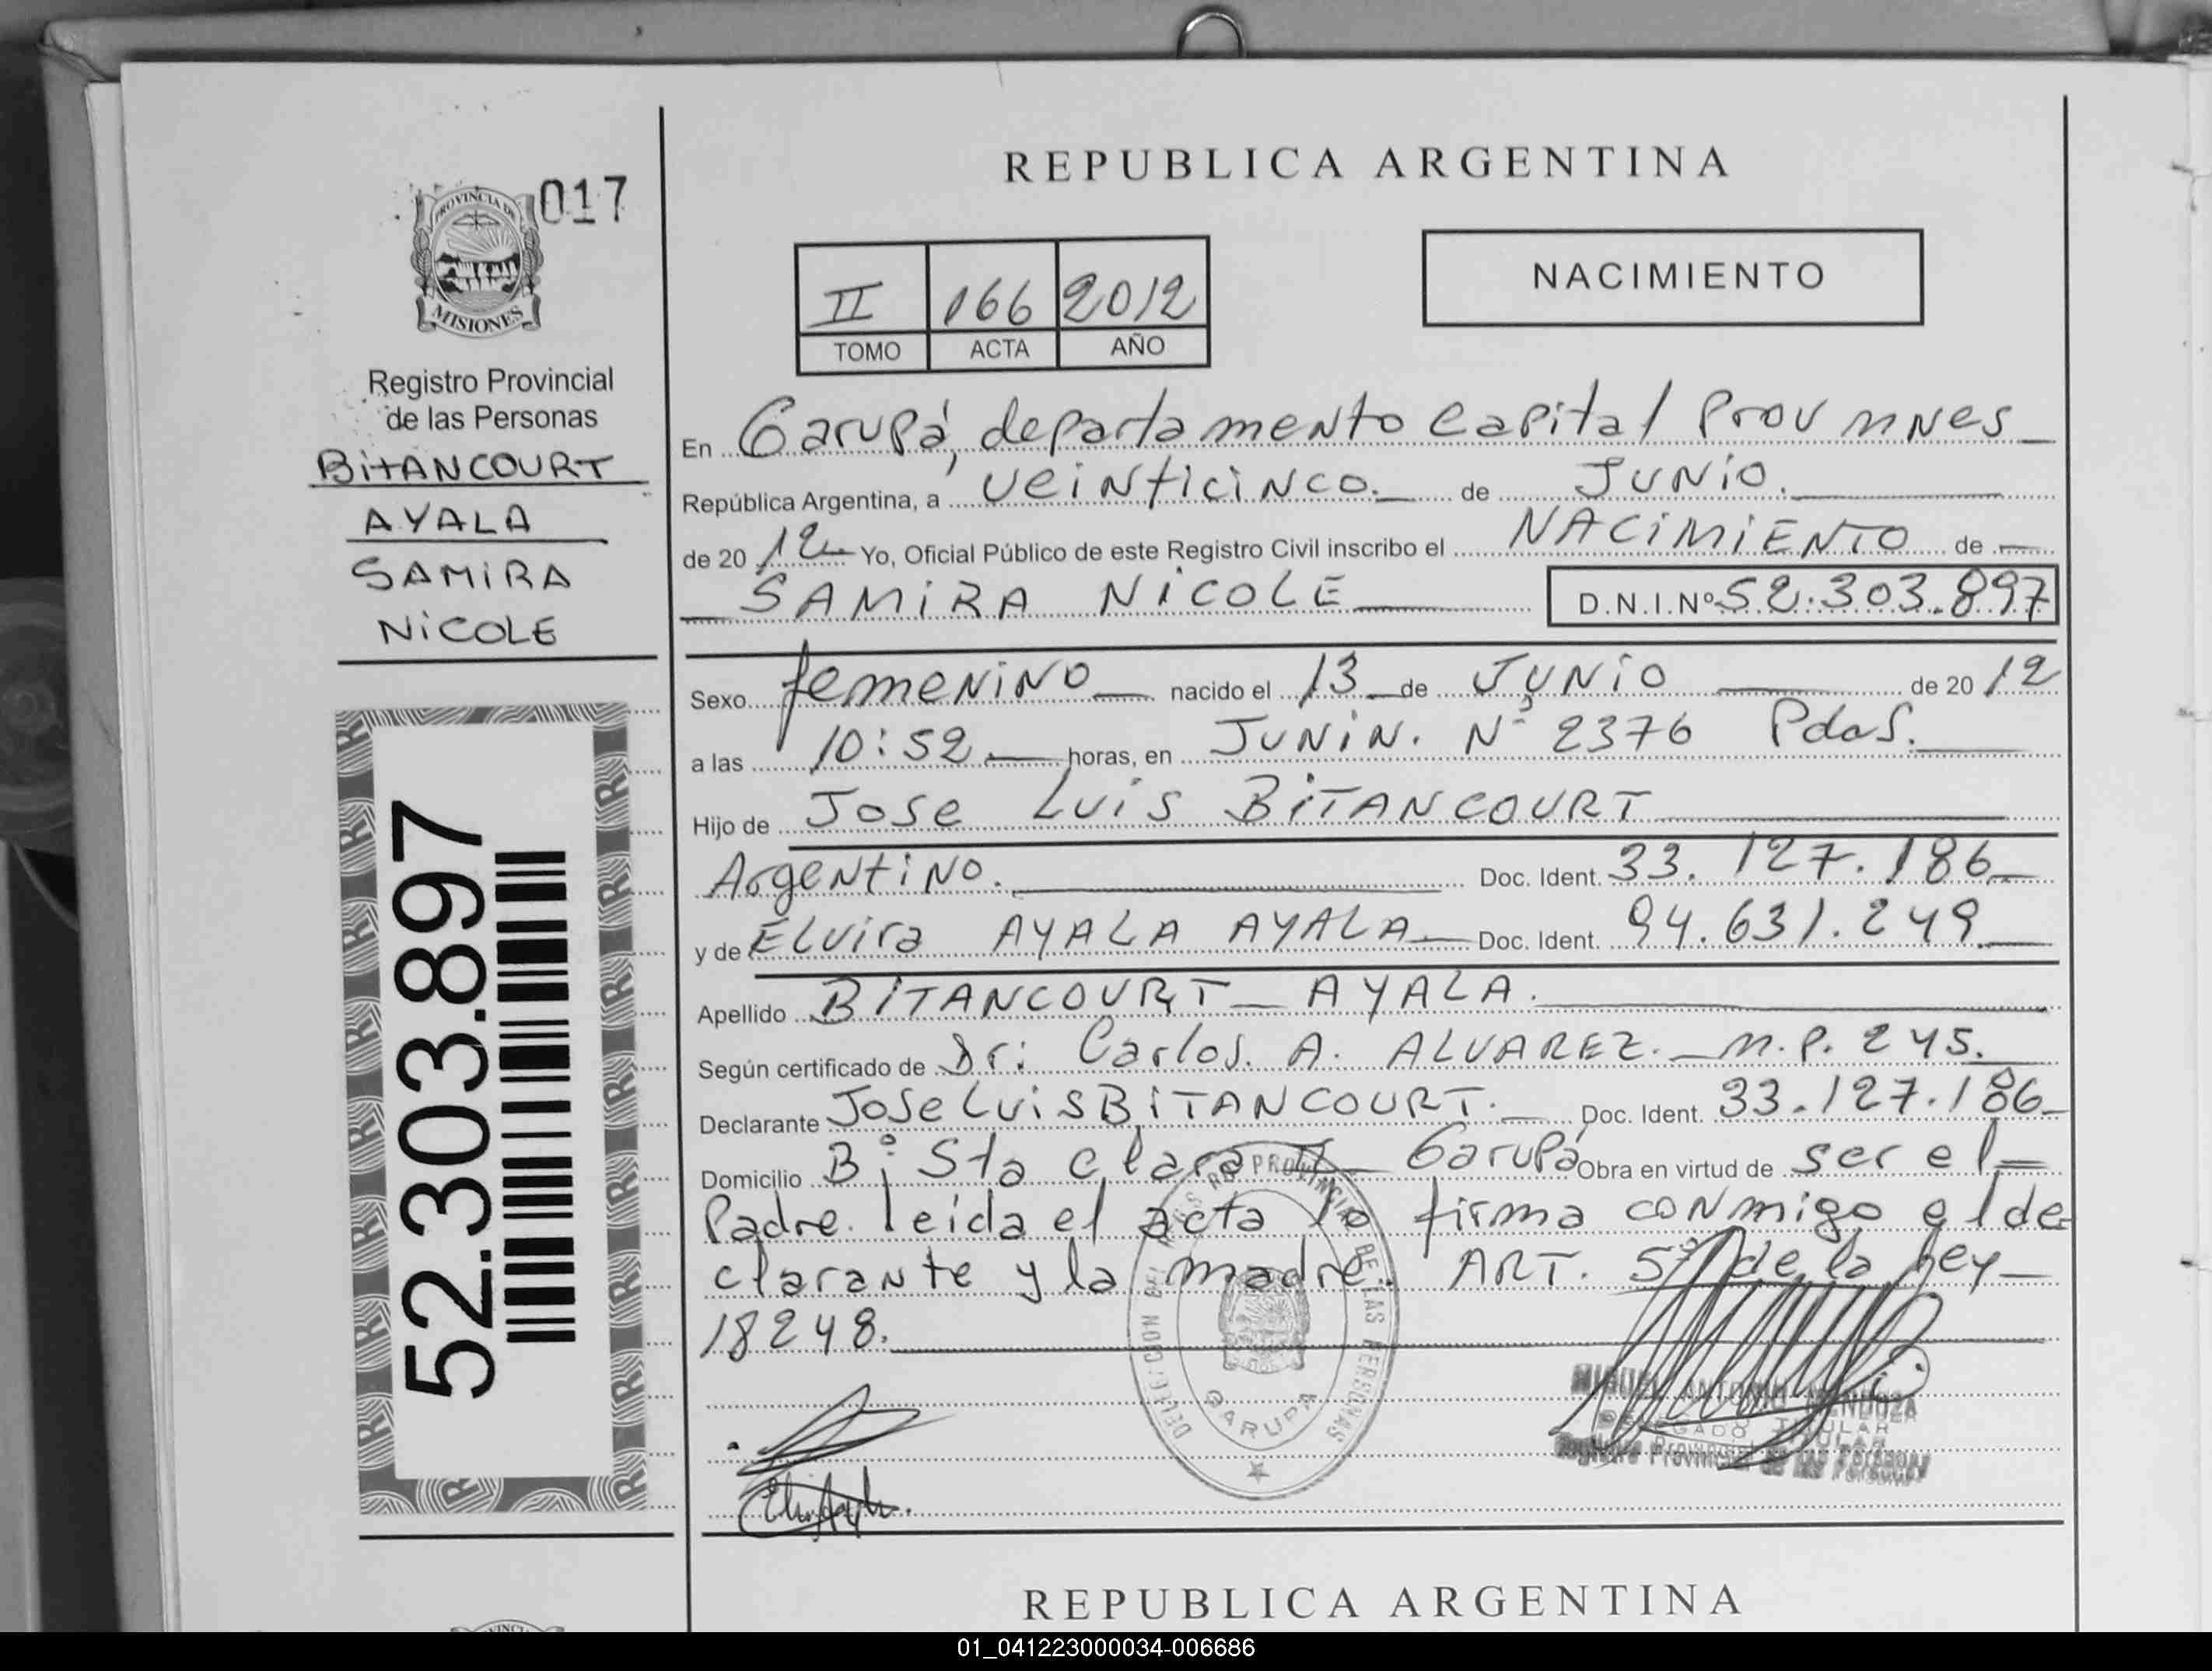 REPUBLICA ARGENTINA
PROVINCIA DE
MISIONES
017
Registro Provincial
de las Personas
BITANCOURT
AYALA
SAMIRA
NICOLE
52.303.897
II 166 2012
TOMO ACTA AÑO
NACIMIENTO
En Garupá, departamento Capital Prov mnes
República Argentina, a veinticinco. de Junio.
de 20 12 Yo, Oficial Público de este Registro Civil inscribo el NACIMIENTO de
SAMIRA NICOLE D.N.I.Nº 52.303.897
Sexo femenino nacido el 13 de Junio de 20 12
a las 10:52 horas, en Junin. Nº 2376 Pdas.
Hijo de Jose Luis BITANCOURT
Argentino. Doc. Ident. 33.127.186
y de Elvira AYALA AYALA Doc. Ident. 94.631.249
Apellido BITANCOURT AYALA.
Según certificado de Dr: Carlos. A. ALVAREZ. m.p. 245.
Declarante Jose Luis BITANCOURT. Doc. Ident. 33.127.186
Domicilio Bº Sta clara II Garupá Obra en virtud de ser el
Padre. leida el acta la firma conmigo el de
clarante y la madre. ART. 5º de la ley
18248.
DELEGACION DEL REG PROVINCIAL DE LAS PERSONAS
GARUPA
MIGUEL ANTONIO MENDOZA
DELEGADO TITULAR
Registro Provincial de las Personas
REPUBLICA ARGENTINA
01_041223000034-006686